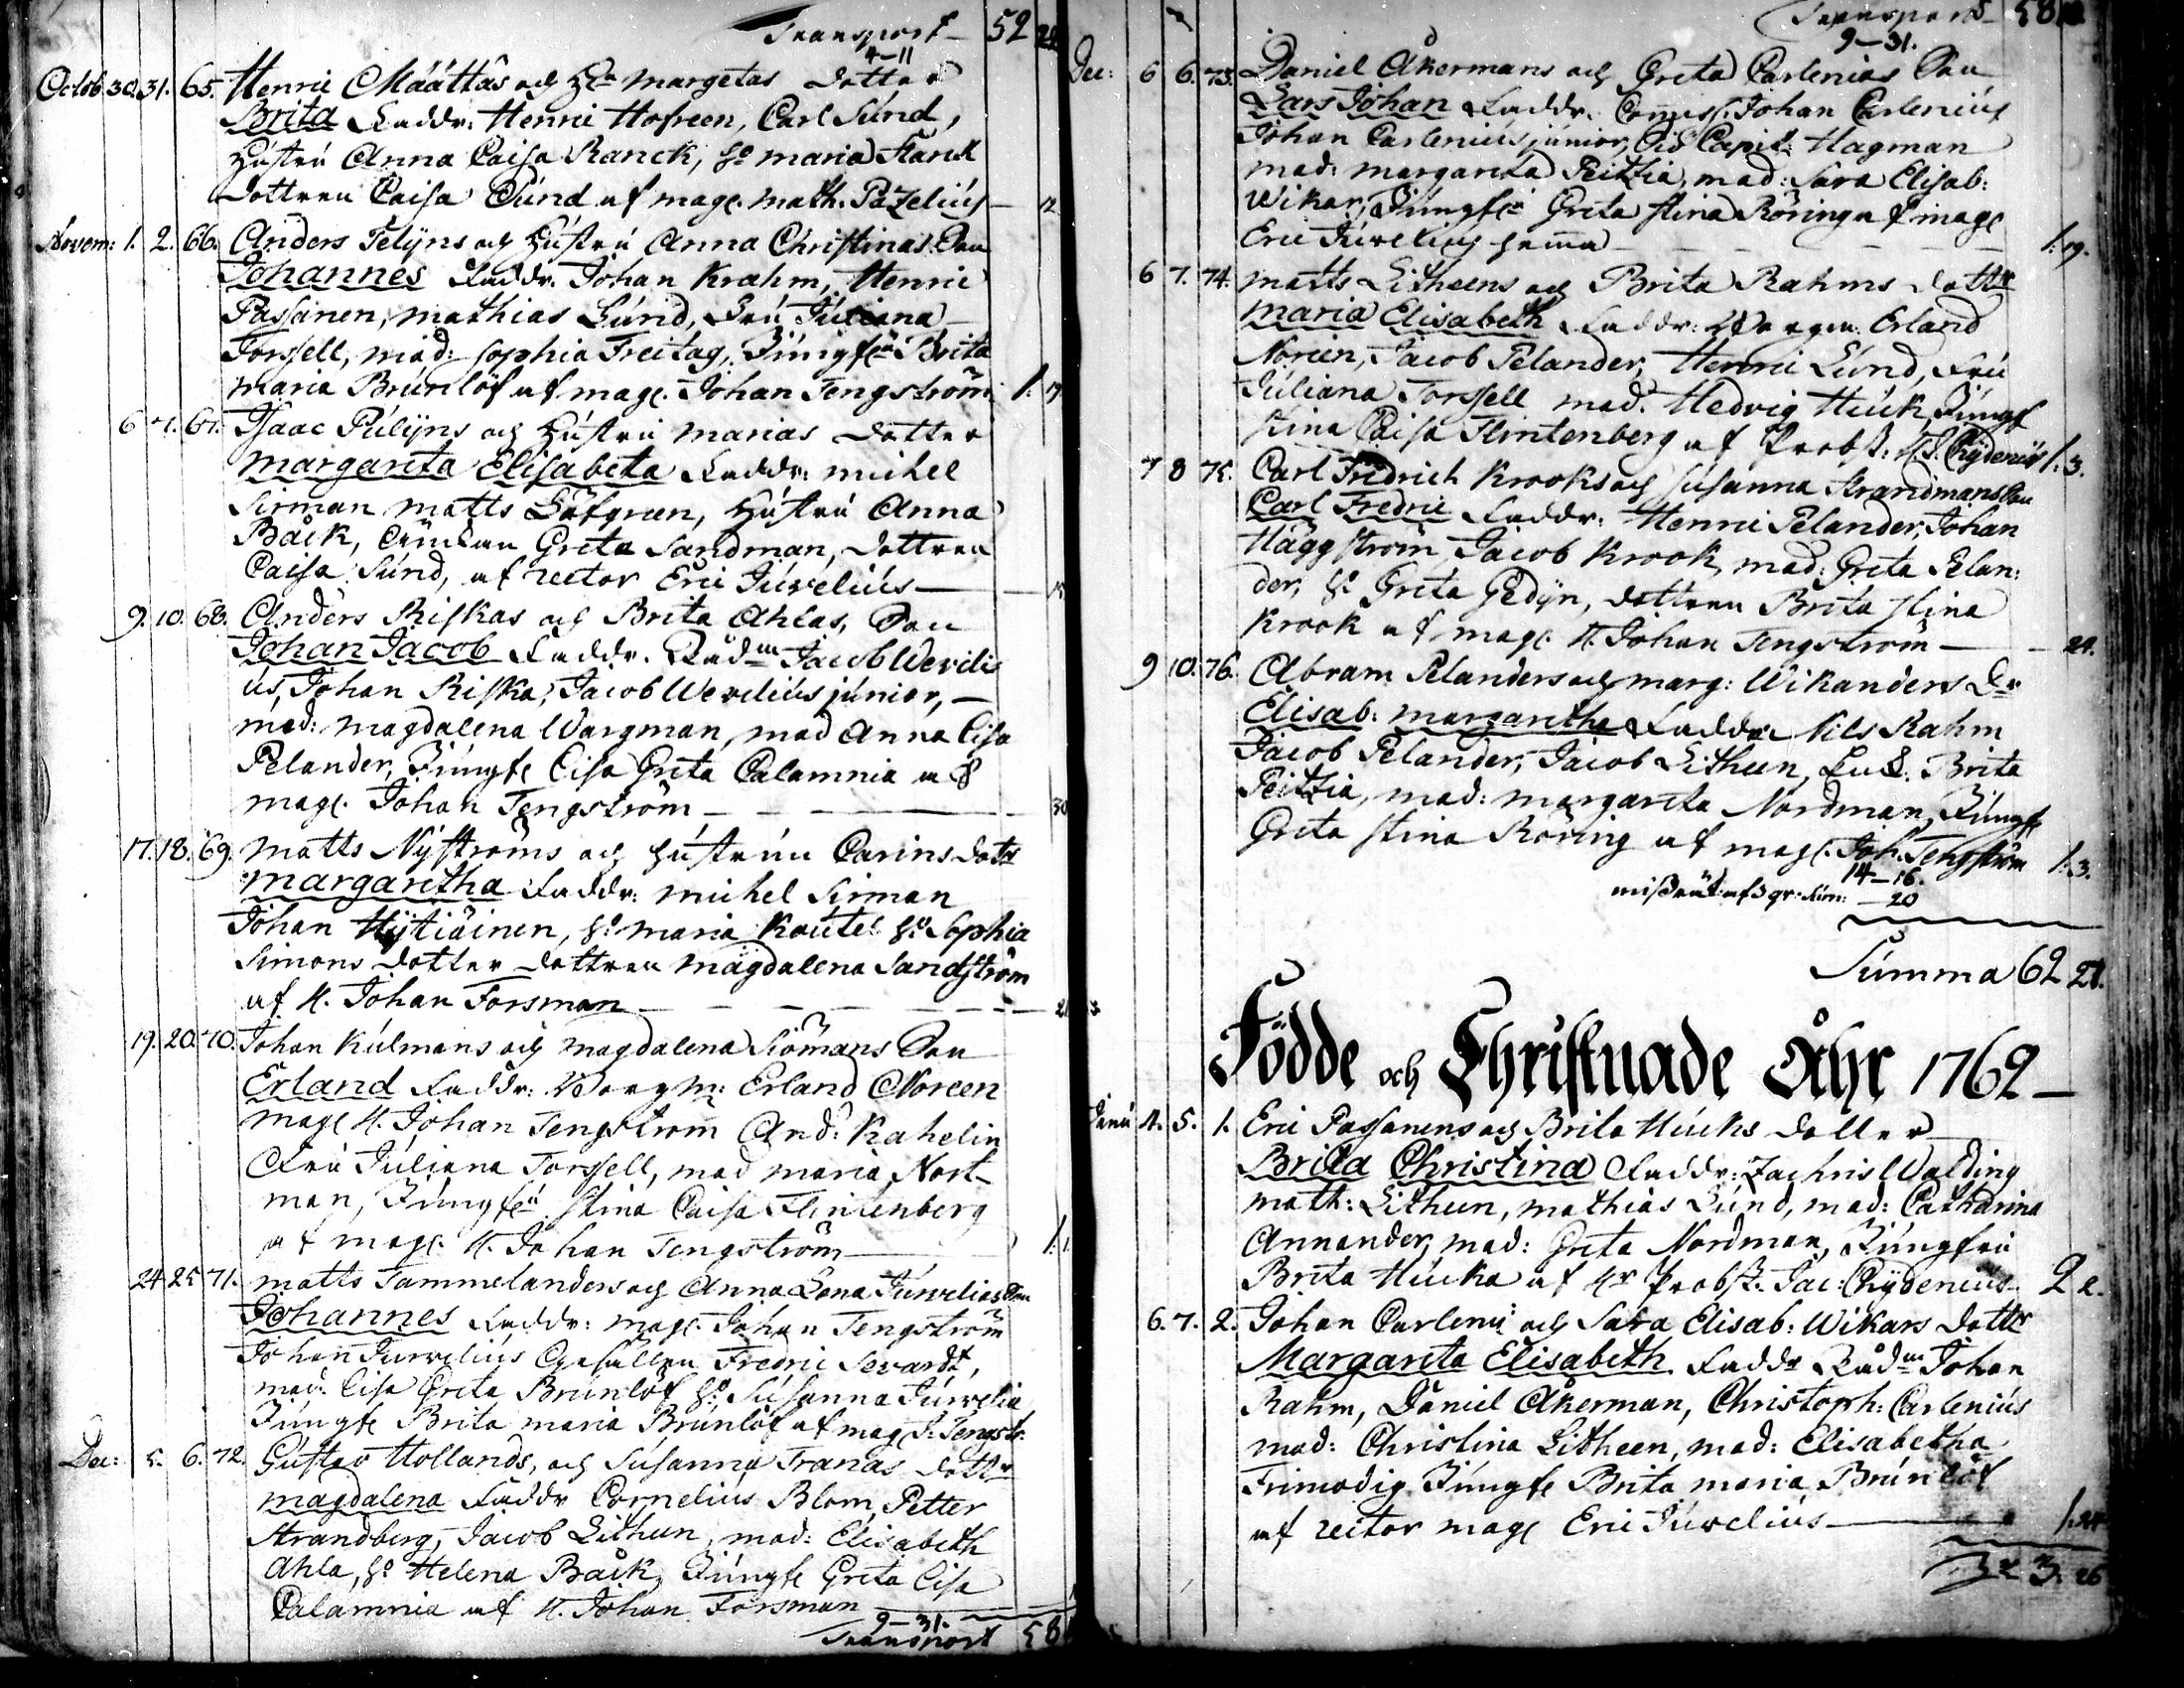 Transport 52
4-11
Octob. 30. 31. 65. Henric Määttäs och H:u Margetas dotter
Brita Faddr: Henric Hofreen, Carl Sund,
Hustru Anna Caisa Ranck, H:o Maria
dottren Caisa Sund af mag. Math. Pazelius — 12
Novem: 1. 2. 66. Anders Telijns och Hustru Anna Christinas Son
Johannes Faddr. Johan Krahm, Henric
Passanen, Mathias Lund, Fru Juliana
Forssell, mad: Sophia Freitag, Jungfru Brita
Maria Brunlöf af mag. Johan Tengström 1. 19
6 7. 67. Isaac Pulijns och Hustru Marias dotter
Margareta Elisabeta Faddr: Michel
Sirman Matts Löfgren, Hustru Anna
Bäck, Greta Sandman, dottren
Caisa Sund, af rector Eric Juvelius —
9. 10. 68. Anders Riskas och Brita Ahlas, Son
Johan Jacob Faddr. Rådm Jacob Werdeli
us, Johan Riska, Jacob Werdelius junior, —
mad: Magdalena Wargman, mad Anna Lisa
Pelander, Jungfr Lisa Greta Calamnia af
mag. Johan Tengström — — — 30
17. 18. 69. Matts Nyströms och hustrun Carins dottr
Margaretha Faddr: Michel Sirman
Johan Hytiäinen, H:o Maria Koutel H:o Sophia
Simons dotter dottren Magdalena Sandström
af H. Johan Forsman — — —
19. 20. 70. Johan Kulmans och Magdalena Siömans Son
Erland Faddr: Borgm: Erland Noreen
Mag H. Johan Tengström And: Kahelin
Fru Juliana Forssell, mad Maria Nort-
man, Jungfru Stina Caisa Flintenberg
af mag. H. Johan Tengström — 1.
24 25 71. Matts Tammelanders och Anna Lena Juvelias Son
Johannes Faddr: mag. Johan Tengström
Johan Juvelius Gesällen Fredric Sevardt,
mad: Lisa Greta Brunlöf H:o Susanna Juvelia
Jungfr Brita Maria Brunlöf af mag J: Tengstr.
Dec: 5. 6. 72. Gustav Hollands, och Susanna Tranas dottr
Magdalena Faddr Cornelius Blom, Petter
Strandberg, Jacob Litheen, mad: Elisabeth
Ahla, H:o Helena Bäck, Jungfr Greta Lisa
Calamnia af H. Johan Forsman
9-31.
Transport 58
Transport 58
9-31.
Dec: 6 6. 73. Daniel Åkermans och Greta Carlenias Son
Lars Johan Faddr. Commiss. Johan Carlenius
Johan Carlenius junior, Capit: Hagman
mad: Margareta Peitzia, mad: Sara Elisab:
Wikar, Jungfru Greta Stina Röring af mag
Eric Juvelius — — — 1. 19.
6 7. 74. Matts Litheens och Brita Rahms dottr
Maria Elisabeth Faddr: Borgm. Erland
Noreen, Jacob Pelander, Henric Lund, Fru
Juliana Forssell mad. Hedvig Huck, Jungf
Stina Caisa Flintenberg af Probst: H. J. Chydenius 1. 3.
7 8 75. Carl Fredrich Krooks och Susanna Strandmans Son
Carl Fredric Faddr: Henric Pelander, Johan
Häggström, Jacob Krook, mad: Greta Pelan:
der, H:o Greta Gedijn, dottren Brita Stina
Krook af mag. H. Johan Tengström — — 24.
9 10. 76. Abram Pelanders och Marg: Wikanders D:r
Elisab: Margaretha Faddr. Nils Rahm
Jacob Pelander, Jacob Litheen, Brita
Peitzia, mad: Margareta Nordman, Jungfr
Greta Stina Röring af mag. Joh. Tengström 1. 3.
14-16.
— 20
Summa 62 21.
Födde och Christnade Åhr 1762 —
Janu 4. 5. 1. Eric Passanens och Brita Hucks dotter
Brita Christina Faddr: Zachris Walding
Math: Litheen, Mathias Lund, mad: Catharina
Annander, mad: Greta Nordman, Jungfru
Brita Hucka af Hr Probst. Jac: Chydenius 2 2.
6. 7. 2. Johan Carlenii och Sara Elisab: Wikars dottr
Margareta Elisabeth Faddr Rådm Johan
Rahm, Daniel Åkerman, Christoph: Carlenius
mad: Christina Litheen, mad: Elisabetha
Frimodig Jungfr Brita Maria Brunlöf
af rector mag Eric Juvelius — 1. 24
3. 26